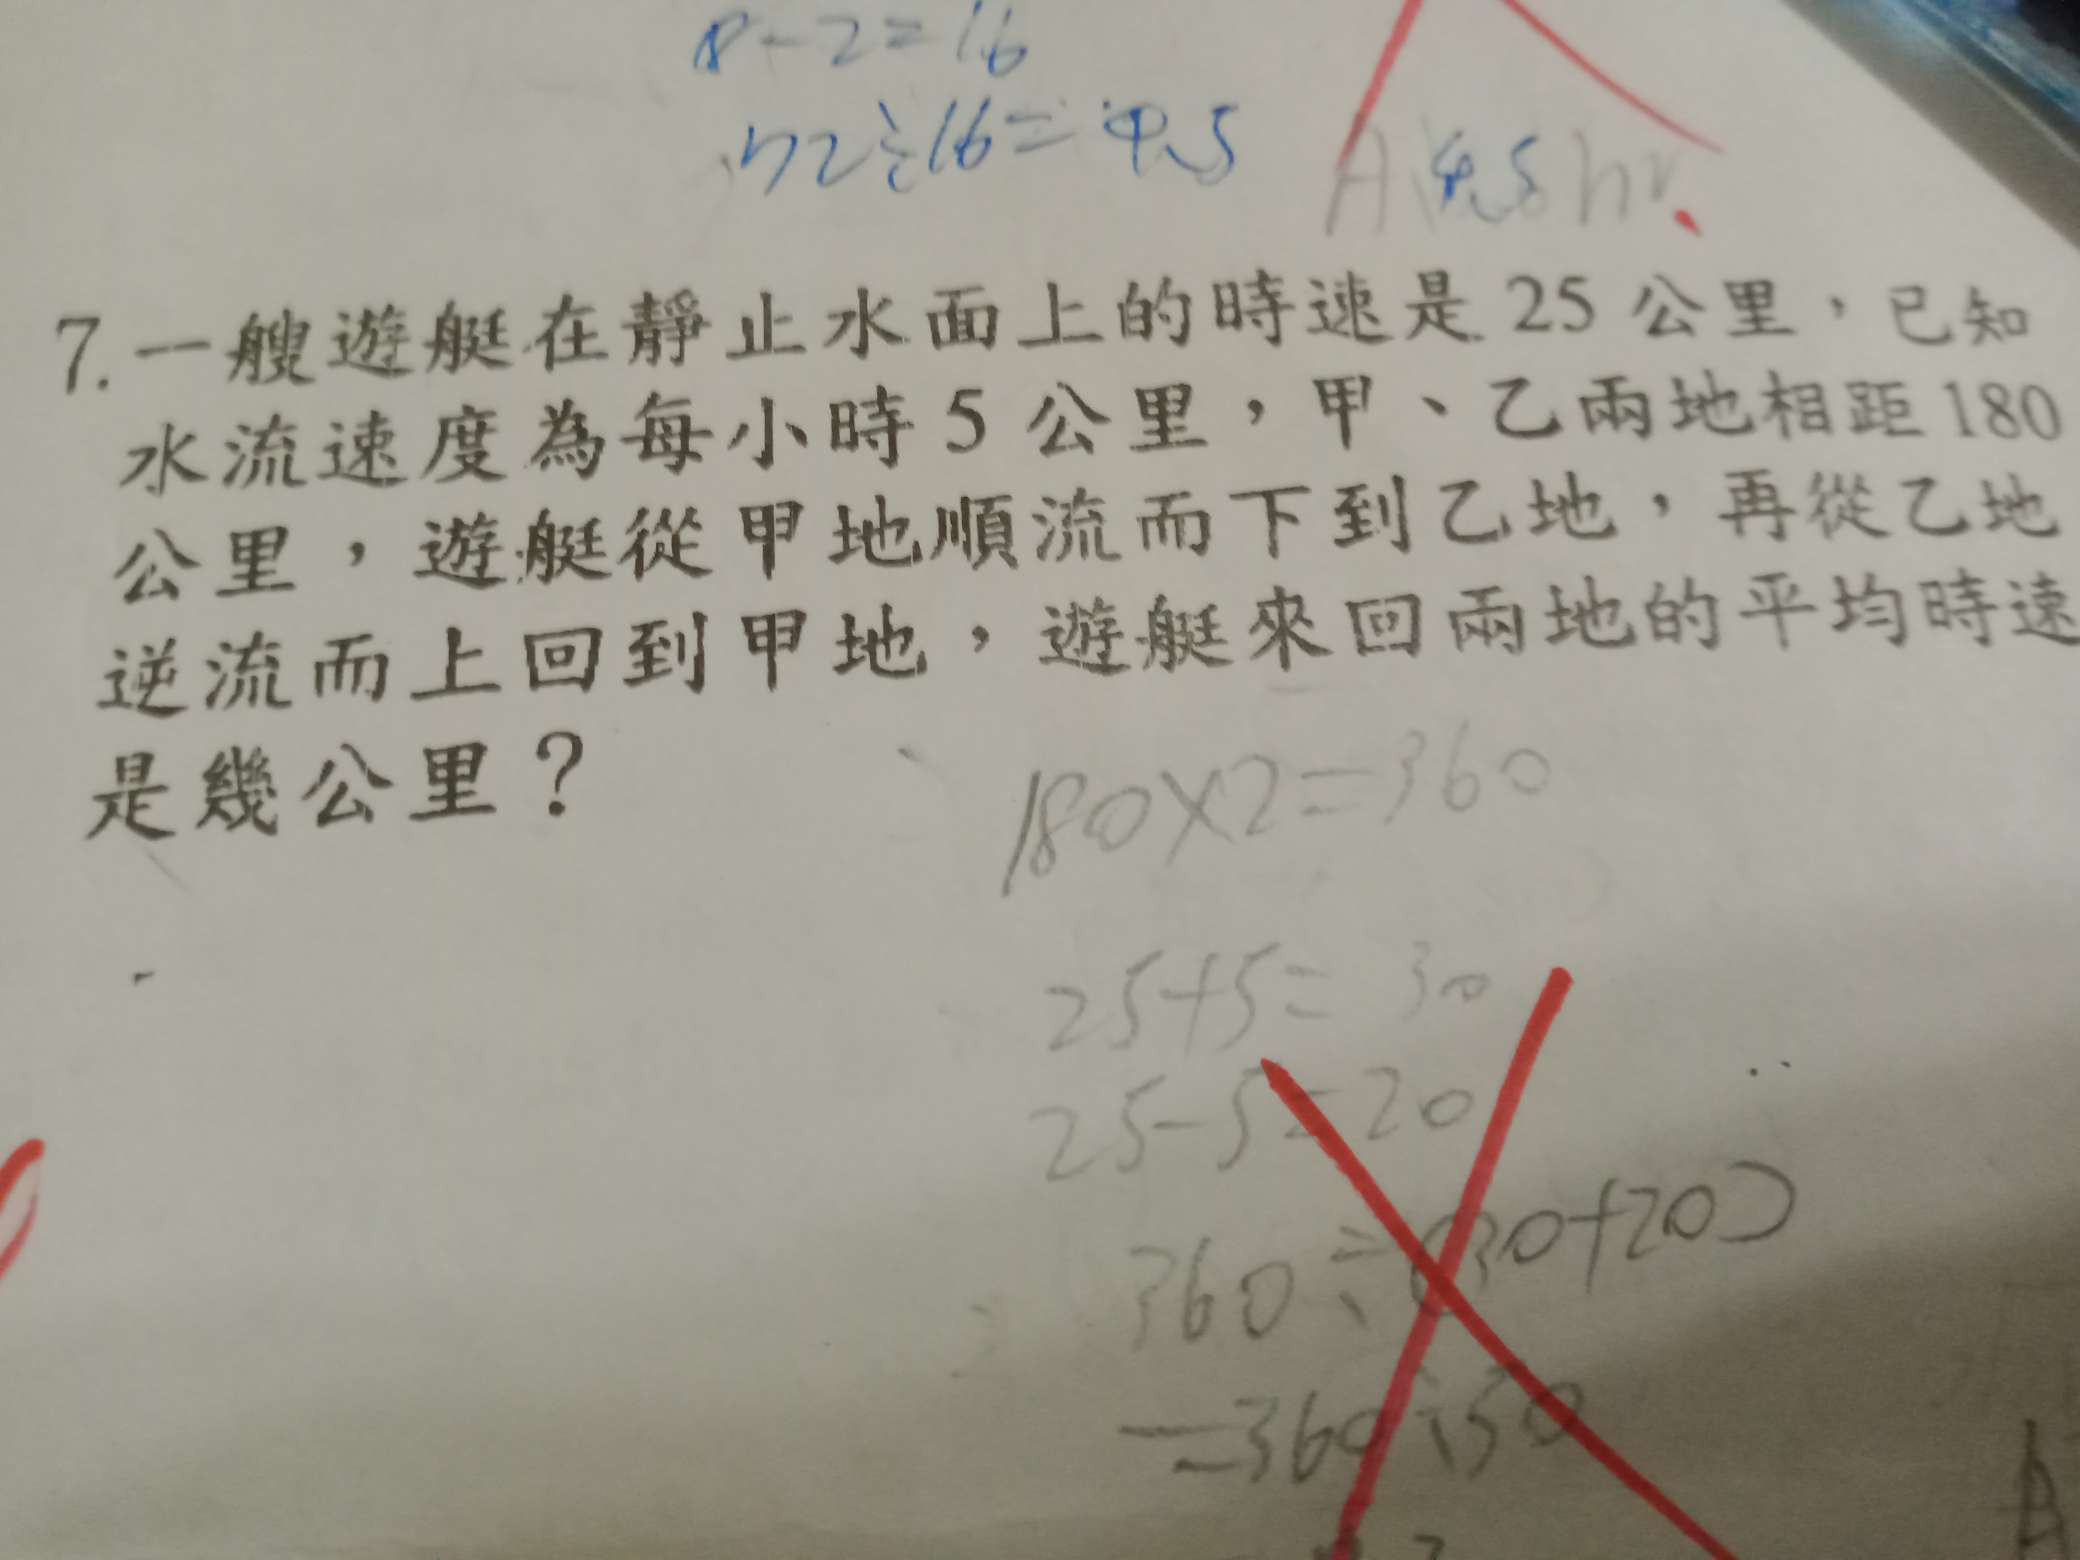 8-2=16
72÷16=4.5
A 4.5hr.
7.一艘遊艇在靜止水面上的時速是 25 公里，已知
水流速度為每小時 5 公里，甲、乙兩地相距 180
公里，遊艇從甲地順流而下到乙地，再從乙地
逆流而上回到甲地，遊艇來回兩地的平均時速
是幾公里？
180×2=360
25+5=30
25-5=20
360÷(30+20)
=360÷50
A